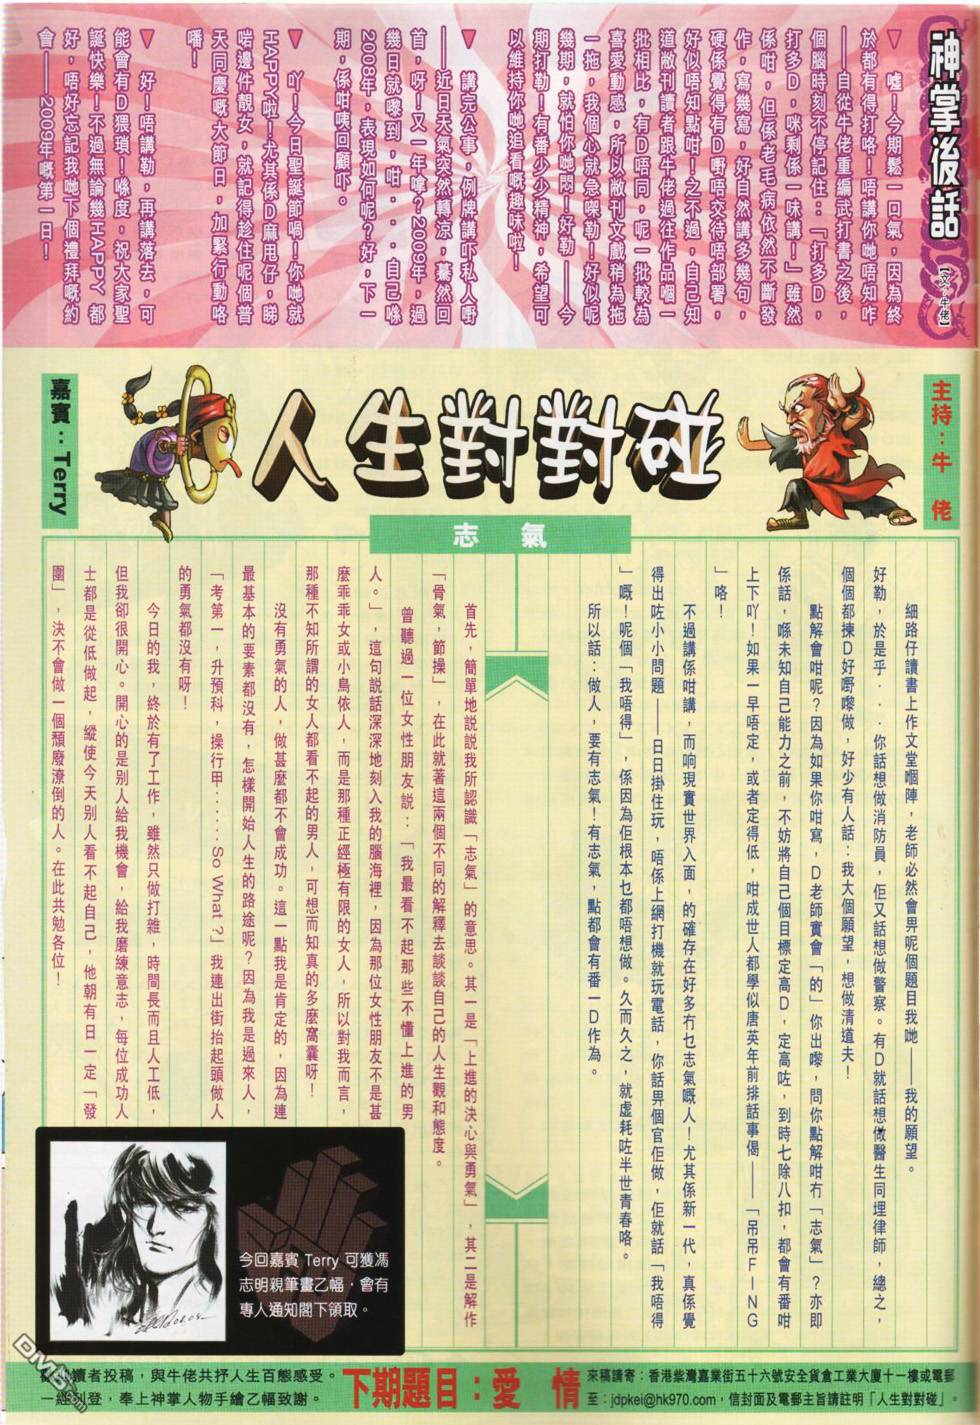 神掌後話
【文:牛佬】
▼ 噓!今期鬆一口氣,因為終
於都有得打咯!唔講你哋唔知咋
——自從牛佬重編武打書之後,
個腦時刻不停記住:「打多D,
打多D,咪剩係一味講!」雖然
係咁,但係老毛病依然不斷發
作,寫幾寫,好自然講多幾句,
硬係覺得有D嘢唔交待唔部署,
好似唔知點咁!之不過,自己知
道敝刊讀者跟牛佬過往作品嗰一
批相比,有D唔同,呢一批較為
喜愛動感,所以敝刊文戲稍為拖
一拖,我個心就急㗎勒!好似呢
幾期,就怕你哋悶!好勒——今
期打勒!有番少少精神,希望可
以維持你哋追看嘅趣味啦!
▼ 講完公事,例牌講吓私人嘢
——近日天氣突然轉涼,驀然回
首,呀!又一年嗱?2009年,過
幾日就嚟到,咁...自己喺
2008年,表現如何呢?好,下一
期,係咁咦回顧吓。
▼ 吖!今日聖誕節喎!你哋就
HAPPY啦!尤其係D麻甩仔,睇
啱邊件靚女,就記得趁住呢個普
天同慶嘅大節日,加緊行動咯
噃!
▼ 好!唔講勒,再講落去,可
能會有D猥瑣!喺度,祝大家聖
誕快樂!不過無論幾HAPPY 都
好,唔好忘記我哋下個禮拜嘅約
會——2009年嘅第一日!
主持:牛 佬
人生對對碰
嘉賓:Terry
志 氣
細路仔讀書上作文堂嗰陣,老師必然會畀呢個題目我哋——我的願望。
好勒,於是乎...你話想做消防員,佢又話想做警察。有D就話想做醫生同埋律師,總之,
個個都揀D好嘢嚟做,好少有人話:我大個願望,想做清道夫!
點解會咁呢?因為如果你咁寫,D老師實會「的」你出嚟,問你點解咁冇「志氣」?亦即
係話,喺未知自己能力之前,不妨將自己個目標定高D,定高咗,到時七除八扣,都會有番咁
上下吖!如果一早唔定,或者定得低,咁成世人都學似唐英年前排話事偈——「吊吊FING
」咯!
不過講係咁講,而响現實世界入面,的確存在好多冇乜志氣嘅人!尤其係新一代,真係覺
得出咗小小問題——日日掛住玩,唔係上網打機就玩電話,你話畀個官佢做,佢就話「我唔得
」嘅!呢個「我唔得」,係因為佢根本乜都唔想做。久而久之,就虛耗咗半世青春咯。
所以話:做人,要有志氣!有志氣,點都會有番一D作為。
首先,簡單地説説我所認識「志氣」的意思。其一是「上進的決心與勇氣」,其二是解作
「骨氣,節操」,在此就著這兩個不同的解釋去談談自己的人生觀和態度。
曾聽過一位女性朋友説:「我最看不起那些不懂上進的男
人。」,這句說話深深地刻入我的腦海裡,因為那位女性朋友不是甚
麼乖乖女或小鳥依人,而是那種正經極有限的女人,所以對我而言,
那種不知所謂的女人都看不起的男人,可想而知真的多麼窩囊呀!
沒有勇氣的人,做甚麼都不會成功。這一點我是肯定的,因為連
最基本的要素都沒有,怎樣開始人生的路途呢?因為我是過來人,
「考第一,升預科,操行甲……So What?」我連出街抬起頭做人
的勇氣都沒有呀!
今日的我,終於有了工作,雖然只做打雜,時間長而且人工低,
但我卻很開心。開心的是别人給我機會,給我磨練意志,每位成功人
士都是從低做起,縱使今天别人看不起自己,他朝有日一定「發
圍」,決不會做一個頹廢潦倒的人。在此共勉各位!
今回嘉賓 Terry 可獲馮
志明親筆畫乙幅,會有
專人通知閣下領取。
讀者投稿,與牛佬共抒人生百態感受。
一經刊登,奉上神掌人物手繪乙幅致謝。
下期題目:愛 情
來稿請寄:香港柴灣嘉業街五十六號安全貨倉工業大廈十一樓或電郵
至:jdpkei@hk970.com,信封面及電郵主旨請註明「人生對對碰」。